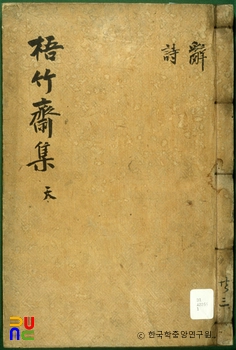 辭
詩
梧竹齋集 天
共三
ⓒ 한국학중앙연구원